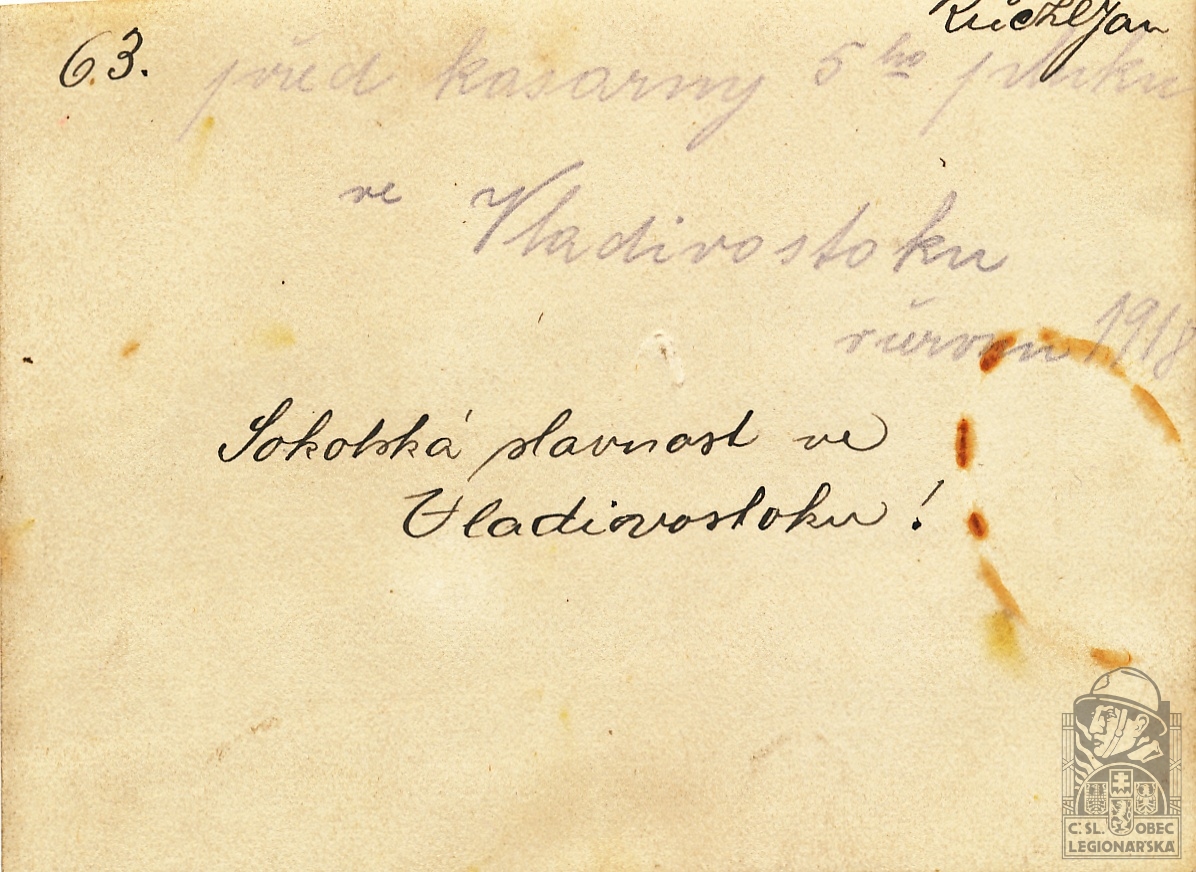 63.
Jan
před kasarny 5ho pluku
ve Vladivostoku
červen 1918
Sokolská slavnost ve
Vladivostoku!
Č.SL. OBEC
LEGIONÁŘSKÁ